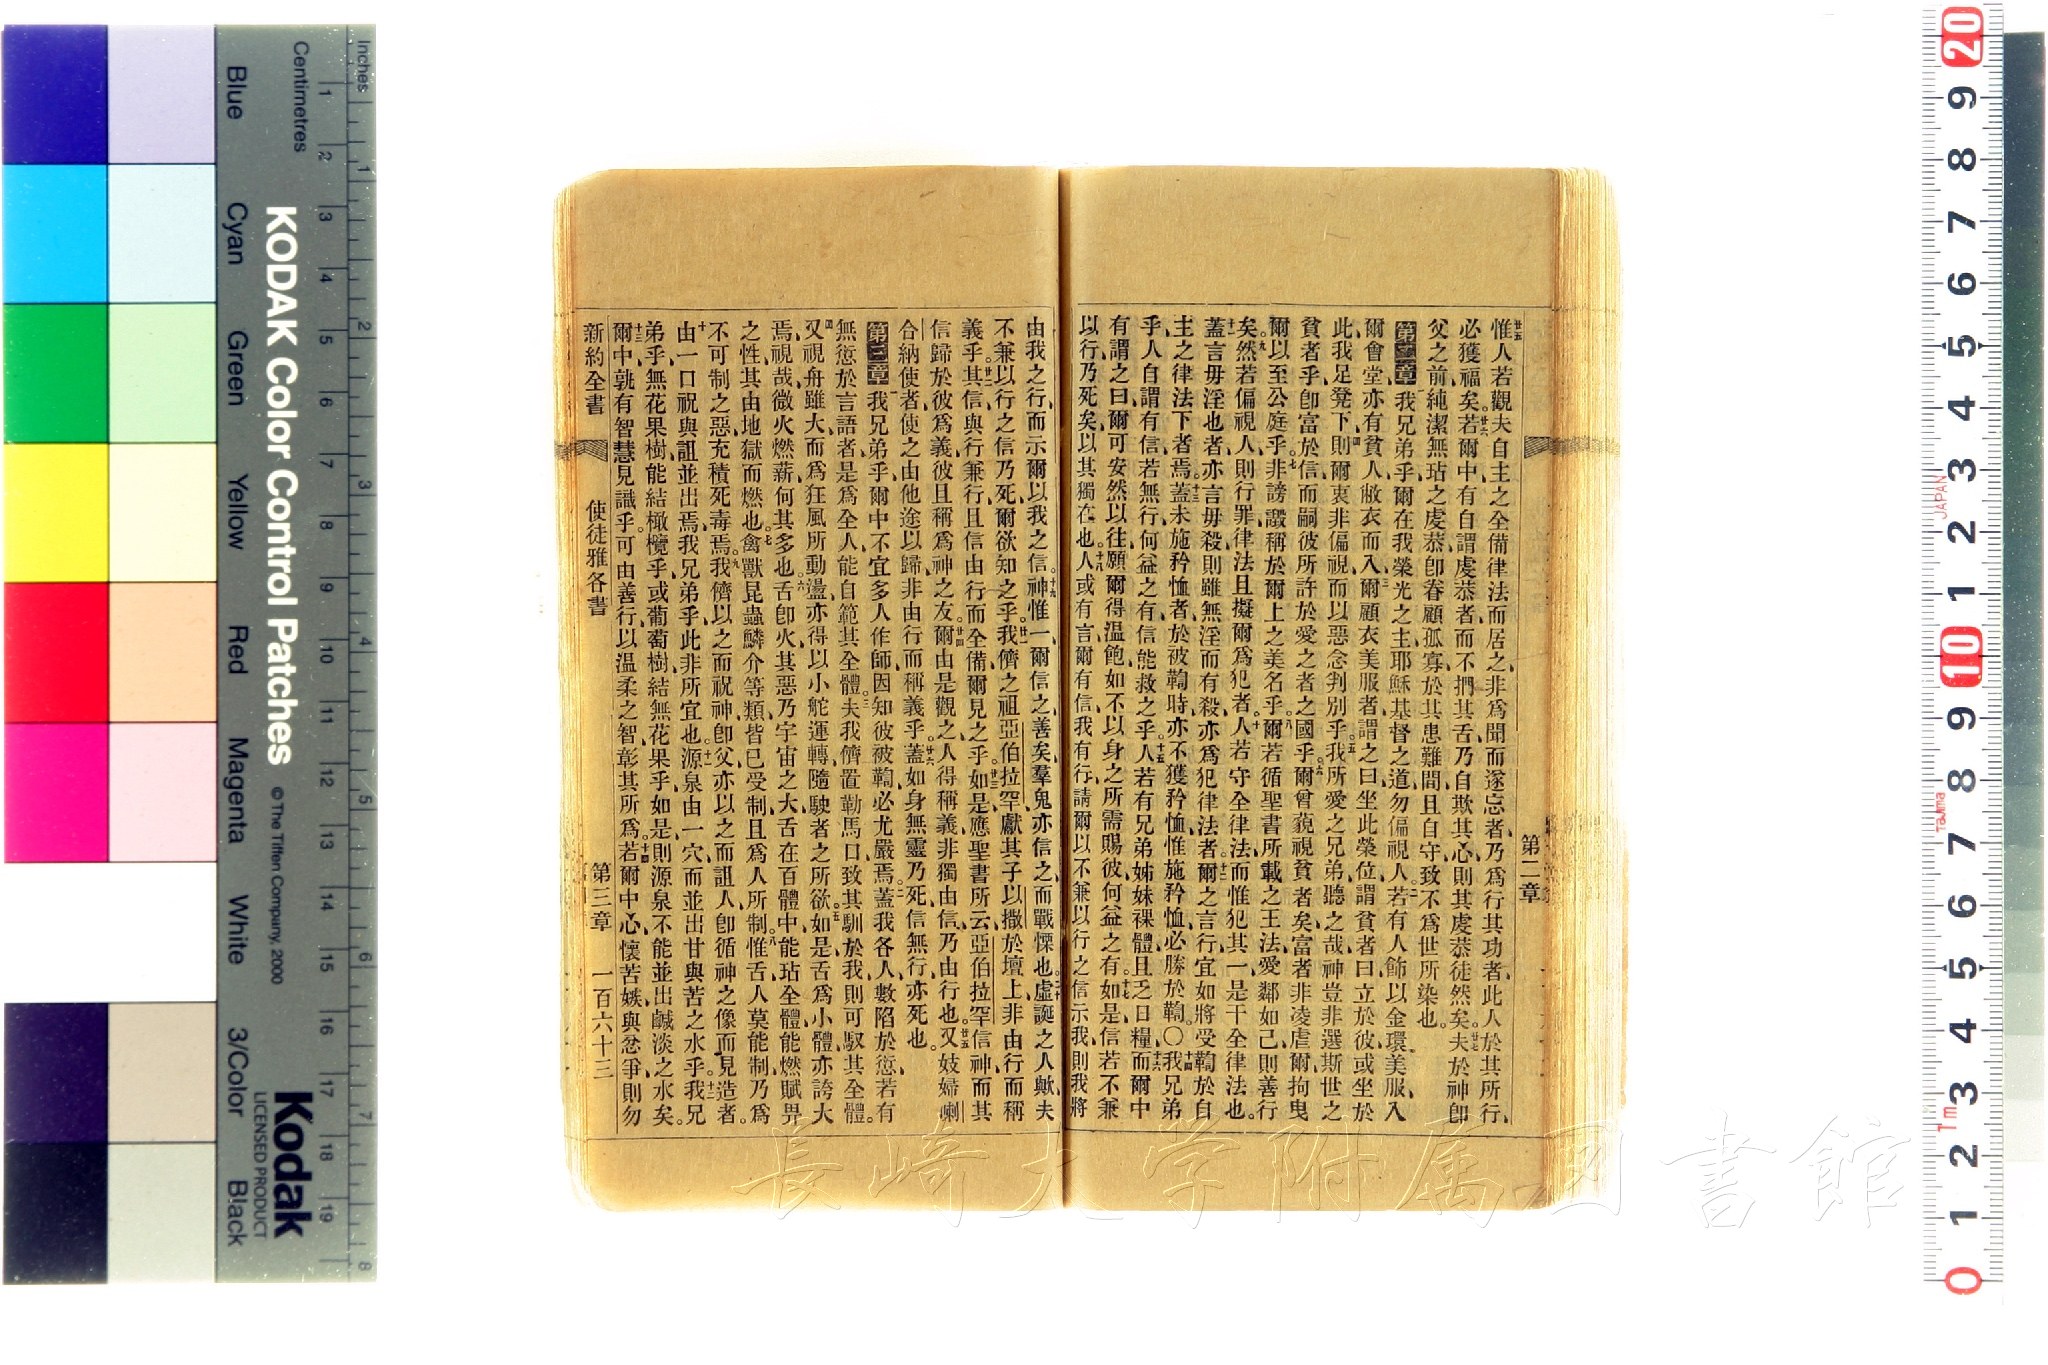 第二章
惟人若觀夫自主之全備律法而居之、非爲聞而遂忘者、乃爲行其功者、此人於其所行、
必獲福矣。廿六若爾中、有自謂虔恭者、而不捫其舌、乃自欺其心、則其虔恭徒然矣。廿七夫於神卽
父之前、純潔無玷之虔恭、卽眷顧孤寡於其患難間、且自守、致不爲世所染也。
第二章 我兄弟乎、爾在我榮光之主耶穌基督之道、勿偏視人。二若有人飾以金環美服、入
爾會堂、亦有貧人敝衣而入、三爾顧衣美服者、謂之曰、坐此榮位、謂貧者曰、立於彼、或坐於
此我足凳下、四則爾衷非偏視、而以惡念判別乎。五我所愛之兄弟、聽之哉、神豈非選斯世之
貧者乎、卽富於信、而嗣彼所許於愛之者之國乎。六爾曾藐視貧者矣、富者非凌虐爾、拘曳
爾以至公庭乎。七非謗讟稱於爾上之美名乎。八爾若循聖書所載之王法、愛鄰如己、則善行
矣。九然若偏視人、則行罪、律法且擬爾爲犯者、十人若守全律法、而惟犯其一、是干全律法也。
十一蓋言毋淫也者、亦言毋殺、則雖無淫而有殺、亦爲犯律法者、十二爾之言行、宜如將受鞫於自
主之律法下者焉。十三蓋未施矜恤者、於被鞫時、亦不獲矜恤、惟施矜恤、必勝於鞫。〇十四我兄弟
乎、人自謂有信、若無行、何益之有、信能救之乎。十五人若有兄弟姊妹裸體、且乏日糧、十六而爾中
有謂之曰、爾可安然以往、願爾得温飽、如不以身之所需賜彼、何益之有。十七如是、信若不兼
以行、乃死矣、以其獨在也。十八人或有言、爾有信、我有行、請爾以不兼以行之信示我、則我將
由我之行、而示爾以我之信。十九神惟一、爾信之善矣、羣鬼亦信之、而戰慄也。二十虛誕之人歟、夫
不兼以行之信乃死、爾欲知之乎。廿一我儕之祖亞伯拉罕、獻其子以撒於壇上、非由行而稱
義乎。廿二其信與行兼行、且信由行而全備、爾見之乎。廿三如是應聖書所云、亞伯拉罕信神、而其
信歸於彼爲義、彼且稱爲神之友。廿四爾由是觀之、人得稱義、非獨由信、乃由行也。廿五又妓婦喇
合納使者、使之由他途以歸、非由行而稱義乎。廿六蓋如身無靈乃死、信無行亦死也。
第三章 我兄弟乎、爾中不宜多人作師、因知彼被鞫必尤嚴焉。二蓋我各人數陷於愆、若有
無愆於言語者、是爲全人、能自範其全體。三夫我儕置勒馬口、致其馴於我、則可馭其全體。
四又視舟雖大、而爲狂風所動盪、亦得以小舵運轉、隨駛者之所欲。五如是、舌爲小體、亦誇大
焉、視哉、微火燃薪何其多也、六舌卽火、其惡乃宇宙之大、舌在百體中、能玷全體、能燃賦畀
之性、其由地獄而燃也。七禽獸昆蟲鱗介等類、皆已受制、且爲人所制、八惟舌人莫能制、乃爲
不可制之惡、充積死毒焉。九我儕以之而祝神卽父、亦以之而詛人、卽循神之像而見造者。
十由一口祝與詛並出焉、我兄弟乎、此非所宜也。十一源泉由一穴、而並出甘與苦之水乎。十二我兄
弟乎、無花果樹能結橄欖乎、或葡萄樹結無花果乎、如是、則源泉不能並出鹹淡之水矣。
十三爾中孰有智慧見識乎、可由善行、以温柔之智、彰其所爲。十四若爾中心懷苦嫉與忿爭、則勿
新約全書 使徒雅各書 第三章 一百六十三
長崎大学附属図書館
Inches
Centimetres
Blue Cyan Green Yellow Red Magenta White 3/Color Black
KODAK Color Control Patches © The Tiffen Company, 2000
Kodak
LICENSED PRODUCT
1 2 3 4 5 6 7 8 9 10 11 12 13 14 15 16 17 18 19
1 2 3 4 5 6 7 8
20 9 8 7 6 5 4 3 2 1 10 9 8 7 6 5 4 3 2 1 0
JAPAN
Tajima